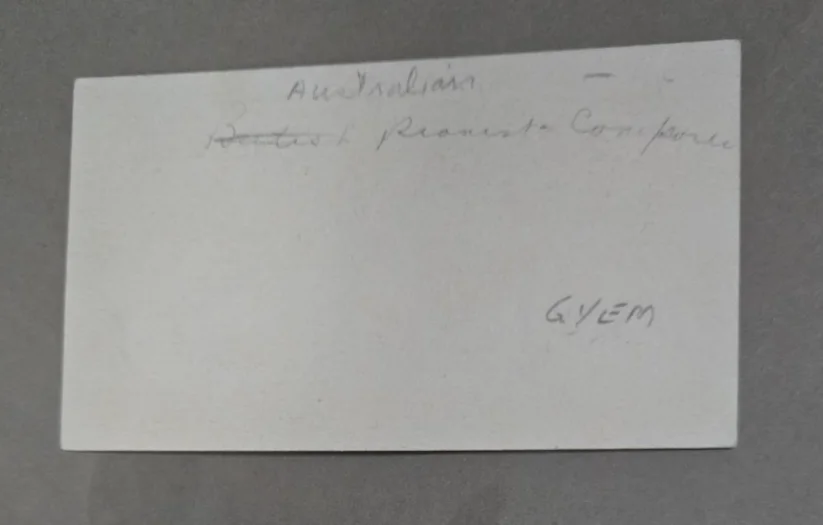 Australian -
British Pianist - Composer
GYEM